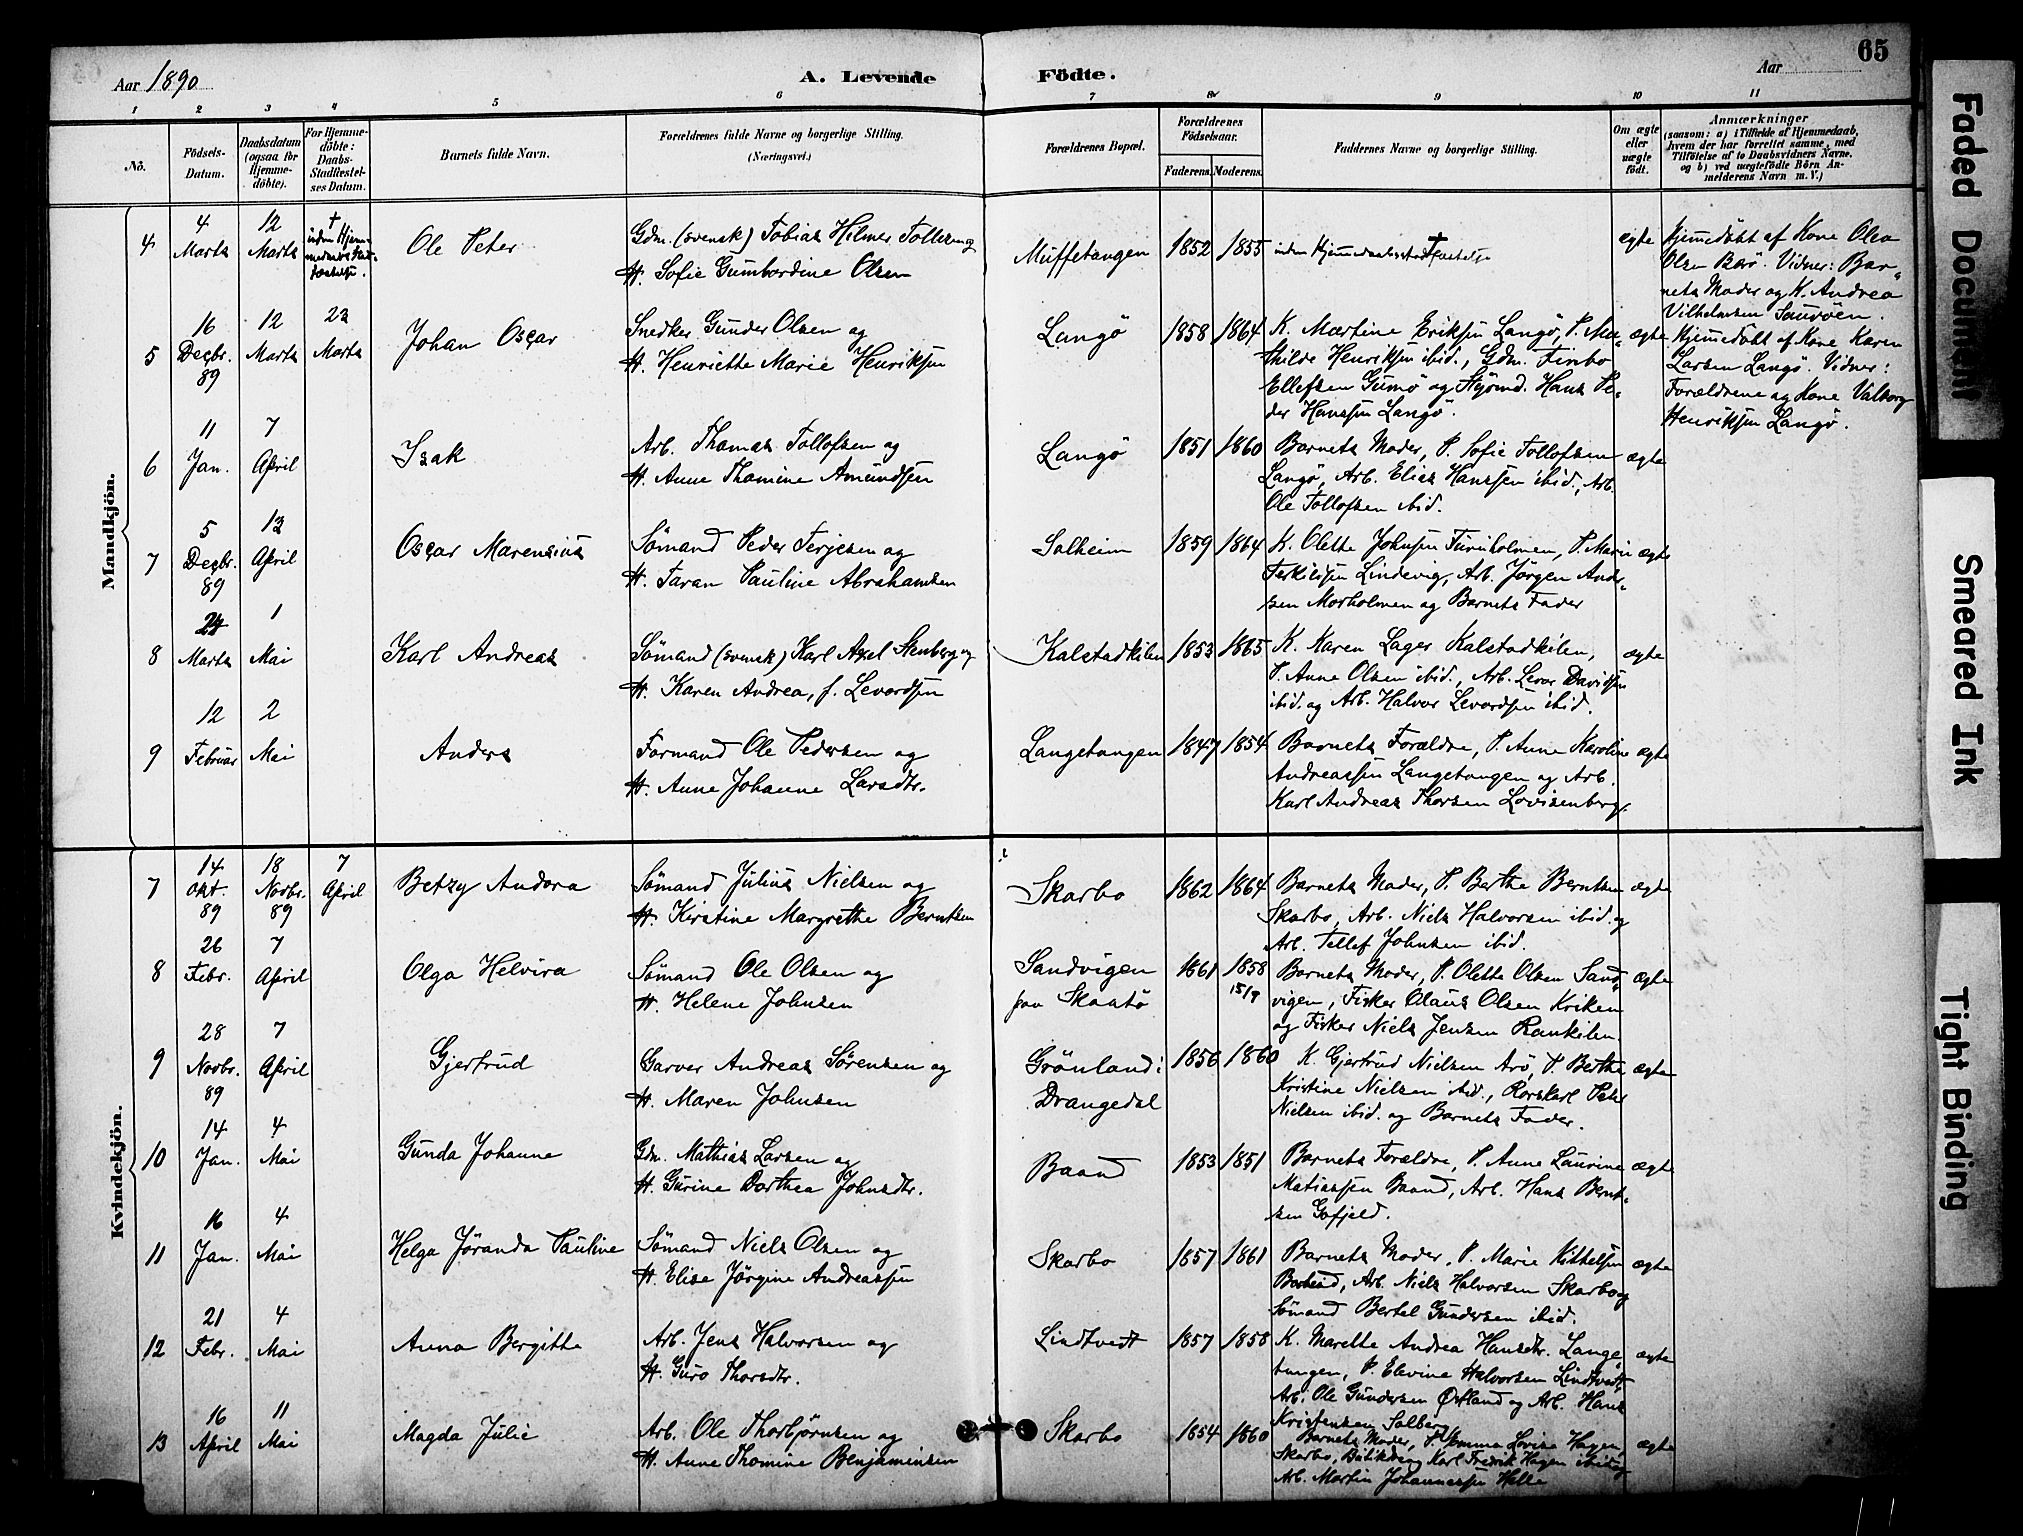 Aar 1890
A. Levende
Födte.
Aar
65
1 2 3 4 5 6 7 8 9 10 11
Nö.
Födsels-Datum.
Daabsdatum (ogsaa for Hjemmedöbte).
For Hjemmedöbte: Daabs-Stadfæstelses Datum.
Barnets fulde Navn.
Forældrenes fulde Navne og borgerlige Stilling. (Næringsvei.)
Forældrenes Bopæl.
Forældrenes Födselsaar.
Faderens. Moderens.
Faddernes Navne og borgerlige Stilling.
Om ægte eller uægte födt.
Anmærkninger
(saasom: a) i Tilfælde af Hjemmedaab, hvem der har forrettet samme, med Tilföielse af to Daabsvidners Navne, og b) ved uægtefödte Börn Anmelderens Navn m. V.)
Mandkjön.
4
4 Marts
12 Marts
† uden Hjem-
Ole Peter
Gdm. (svensk) Tobias Hilmer Tollersen og
H. Sofie Gumbordine Olsen
Müffetangen
1852 1855
uden Hjemmedaabsstadfæstelse
ægte
Hjemmedöbt af Kone Olea
Olsen Barö. Vidner: Bar-
nets Moder og K. Andrea
Vilhelmsen Sauröen.
5
16 Decbr. 89
12 Marts
23 Marts
Johan Oscar
Snedker Gunder Olsen og
H. Henriette Marie Henriksen
Langö
1858 1864
K. Martine Eriksen Langö, P. Ma-
thilde Henriksen ibid., Gdm. Timbo
Ellefsen Gumö og Styrmd. Hans Pe-
der Hanssen Langö.
ægte
Hjemmedöbt af Kone Karen
Larsen Langö. Vidner:
Forældrene og Kone Valborg
Henriksen Langö.
6
11 Jan.
7 April
Isak
Arb. Thomas Tollofsen og
H. Anne Thomine Amundsen
Langö
1851 1860
Barnets Moder, P. Sofie Tollofsen
Langö, Arb. Elias Hanssen ibid., Arb.
Ole Tollofsen ibid.
ægte
7
5 Decbr. 89
13 April
Oscar Marensius
Sömand Peder Terjesen og
H. Taran Pauline Abrahamsen
Solheim
1859 1864
K. Olette Johnsen Furuholmen, P. Marie
Terkildsen Lindevig, Arb. Jörgen Ander-
sen Morholmen og Barnets Fader
ægte
8
Marts
1 Mai
Karl Andreas
Sömand (svensk) Karl Axel Stenberg og
H. Karen Andrea, f. Levordsen
Kalstadkilen
1853 1865
K. Karen Lager Kalstadkilen,
P. Anne Olsen ibid., Arb. Levor Davidsen
ibid. og Arb. Halvor Levordsen ibid.
ægte
9
12 Februar
2 Mai
Anders
Formand Ole Pedersen og
H. Anne Johanne Larsdtr.
Langetangen
1847 1854
Barnets Forældre, P. Anne Karoline
Andreassen Langetangen og Arb.
Karl Andreas Thorsen Lovisenberg.
ægte
Kvindekjön.
7
14 Okt. 89
18 Novbr. 89
7 April
Betzy Andora
Sömand Julius Nielsen og
H. Kirstine Margrethe Berntsen
Skarbo
1862 1864
Barnets Moder, P. Berthe Berntsen
Skarbo, Arb. Niels Halvorsen ibid. og
Arb. Tellef Johnsen ibid.
ægte
8
26 Febr.
7 April
Olga Helvira
Sömand Ole Olsen og
H. Helene Johnsen
Sandvigen
paa Skaatö
1861 1858
15/9
Barnets Moder, P. Olette Olsen Sand-
vigen, Fisker Olaus Olsen Kriken
og Fisker Niels Jensen Rankilen.
ægte
9
28 Novbr. 89
7 April
Gjertrud
Garver Andreas Sörensen og
H. Maren Johnsen
Grönland i
Drangedal
1856 1860
K. Gjertrud Nielsen Arö, P. Berthe
Kristine Nielsen ibid., Rorskarl Peter
Nielsen ibid. og Barnets Fader.
ægte
10
14 Jan.
4 Mai
Gunda Johanne
Gdm. Mathias Larsen og
H. Gurine Dorthea Johnsdtr.
Baand
1853 1851
Barnets Forældre, P. Anne Laurine
Matiassen Baand, Arb. Hans Bernt-
sen Gofjeld.
ægte
11
16 Jan.
4 Mai
Helga Jöranda Pauline
Sömand Niels Olsen og
H. Elise Jörgine Andreassen
Skarbo
1857 1861
Barnets Moder, P. Marie Kittelsen
Arb. Niels Halvorsen Skarbo og
Sömand Bertel Gundersen ibid.
ægte
12
21 Febr.
4 Mai
Anna Bergitte
Arb. Jens Halvorsen og
H. Guro Thorsdtr.
Lindtvedt
1857 1858
K. Marette Andrea Hansdtr. Lange-
tangen, P. Elevine Halvorsen Lindtvedt,
Arb. Ole Gundersen Östland og Arb. Hans
Kristensen Solberg
ægte
13
16 April
11 Mai
Magda Julie
Arb. Ole Thorbjörnsen og
H. Anne Thomine Benjaminsen
Skarbo
1854 1860
Barnets Moder, P. Emma Lovise Hagen
Skarbo, Butikdreng Karl Fredrik Hagen ibid. og
Arb. Martin Johannessen Helle
ægte
Faded Document
Smeared Ink
Tight Binding